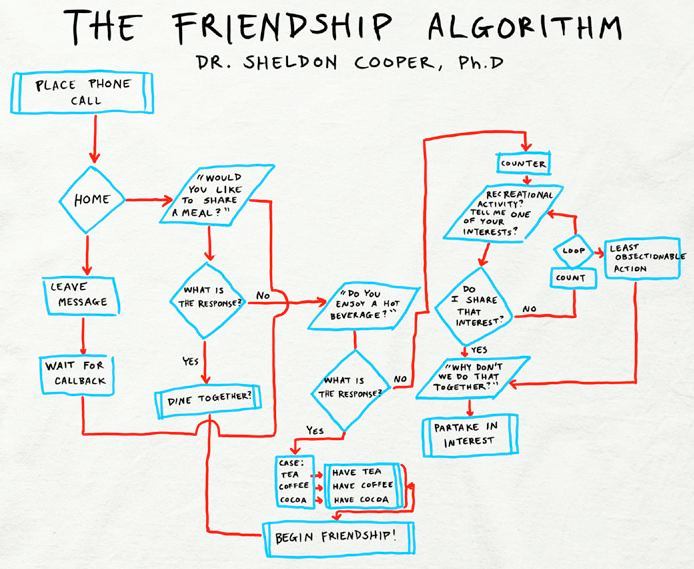 THE FRIENDSHIP ALGORITHM
DR. SHELDON COOPER, Ph.D
PLACE PHONE
CALL
HOME
LEAVE
MESSAGE
WAIT FOR
CALLBACK
"WOULD
YOU LIKE
TO SHARE
A MEAL?"
WHAT IS
THE RESPONSE?
NO
YES
DINE TOGETHER?
"DO YOU
ENJOY A HOT
BEVERAGE?"
WHAT IS
THE RESPONSE?
NO
YES
CASE:
TEA
COFFEE
COCOA
HAVE TEA
HAVE COFFEE
HAVE COCOA
BEGIN FRIENDSHIP!
COUNTER
RECREATIONAL
ACTIVITY?
TELL ME ONE
OF YOUR
INTERESTS?
DO
I SHARE
THAT
INTEREST?
NO
YES
LOOP
COUNT
LEAST
OBJECTIONABLE
ACTION
"WHY DON'T
WE DO THAT
TOGETHER?"
PARTAKE IN
INTEREST